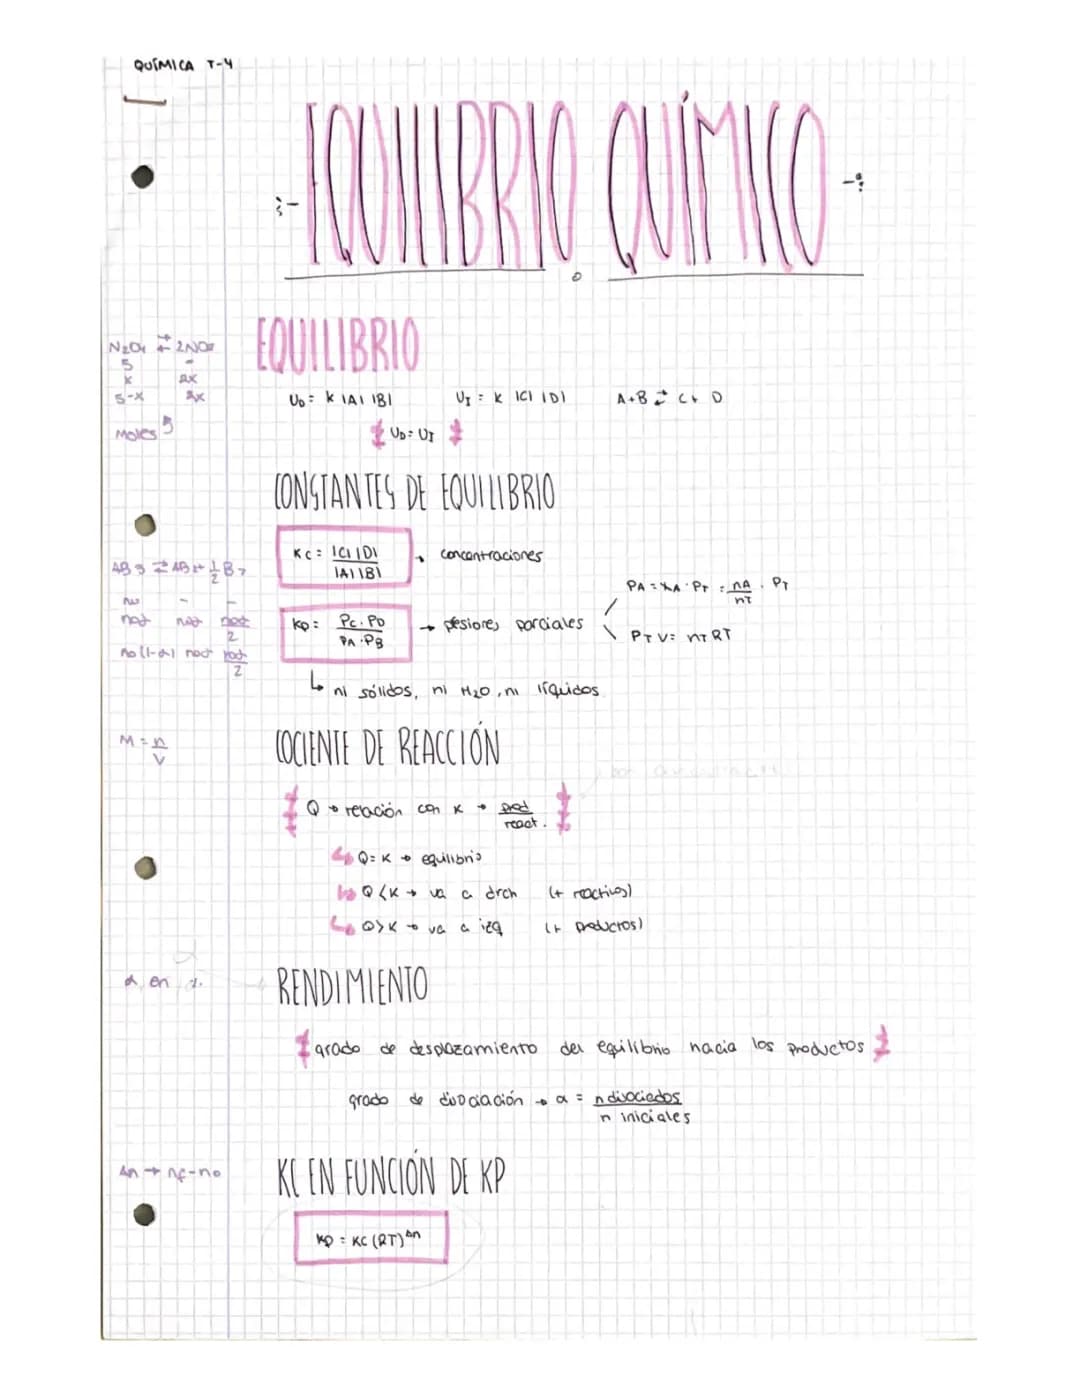 QUÍMICA T-4
EQUILIBRIO QUÍMICO
EQUILIBRIO
N2O4 ⇄ 2NO2
5 -
x 2x
5-x 2x
Moles
UD = K |A| |B|
UI = K |C| |D|
A+B ⇄ C+ D
UD = UI
CONSTANTES DE EQUILIBRIO
KC = |C| |D| / |A| |B| → concentraciones
AB3 ⇄ AB + 1/2 B2
no - -
noα noα noα/2
no(1-α) noα noα/2
Kp = PC · PD / PA · PB → presiones parciales
PA = XA · PT = nA/nT · PT
PT V = nT RT
↳ ni sólidos, ni H2O, ni líquidos
M = n/V
COCIENTE DE REACCIÓN
Q → relación con K → prod / react.
↳ Q = K → equilibrio
↳ Q < K → va a drch (+ reactivos)
↳ Q > K → va a izq (+ productos)
α en %
RENDIMIENTO
grado de desplazamiento del equilibrio hacia los productos
grado de disociación → α = n disociados / n iniciales
Δn → nf-no
KC EN FUNCIÓN DE KP
KP = KC (RT)^Δn